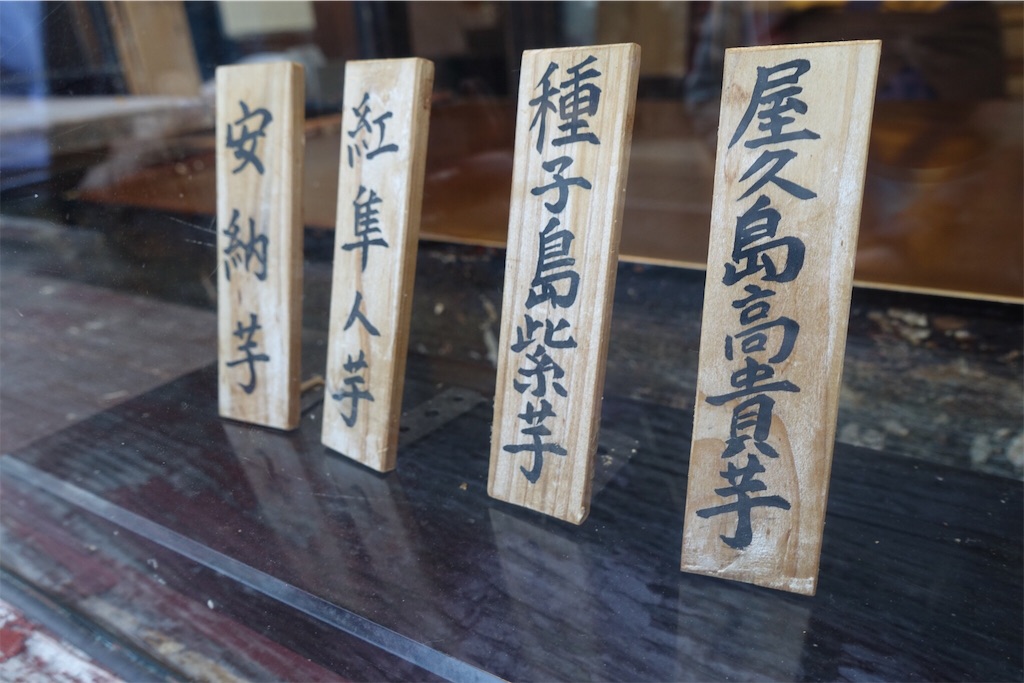 安納芋
紅隼人芋
種子島紫芋
屋久島高貴芋